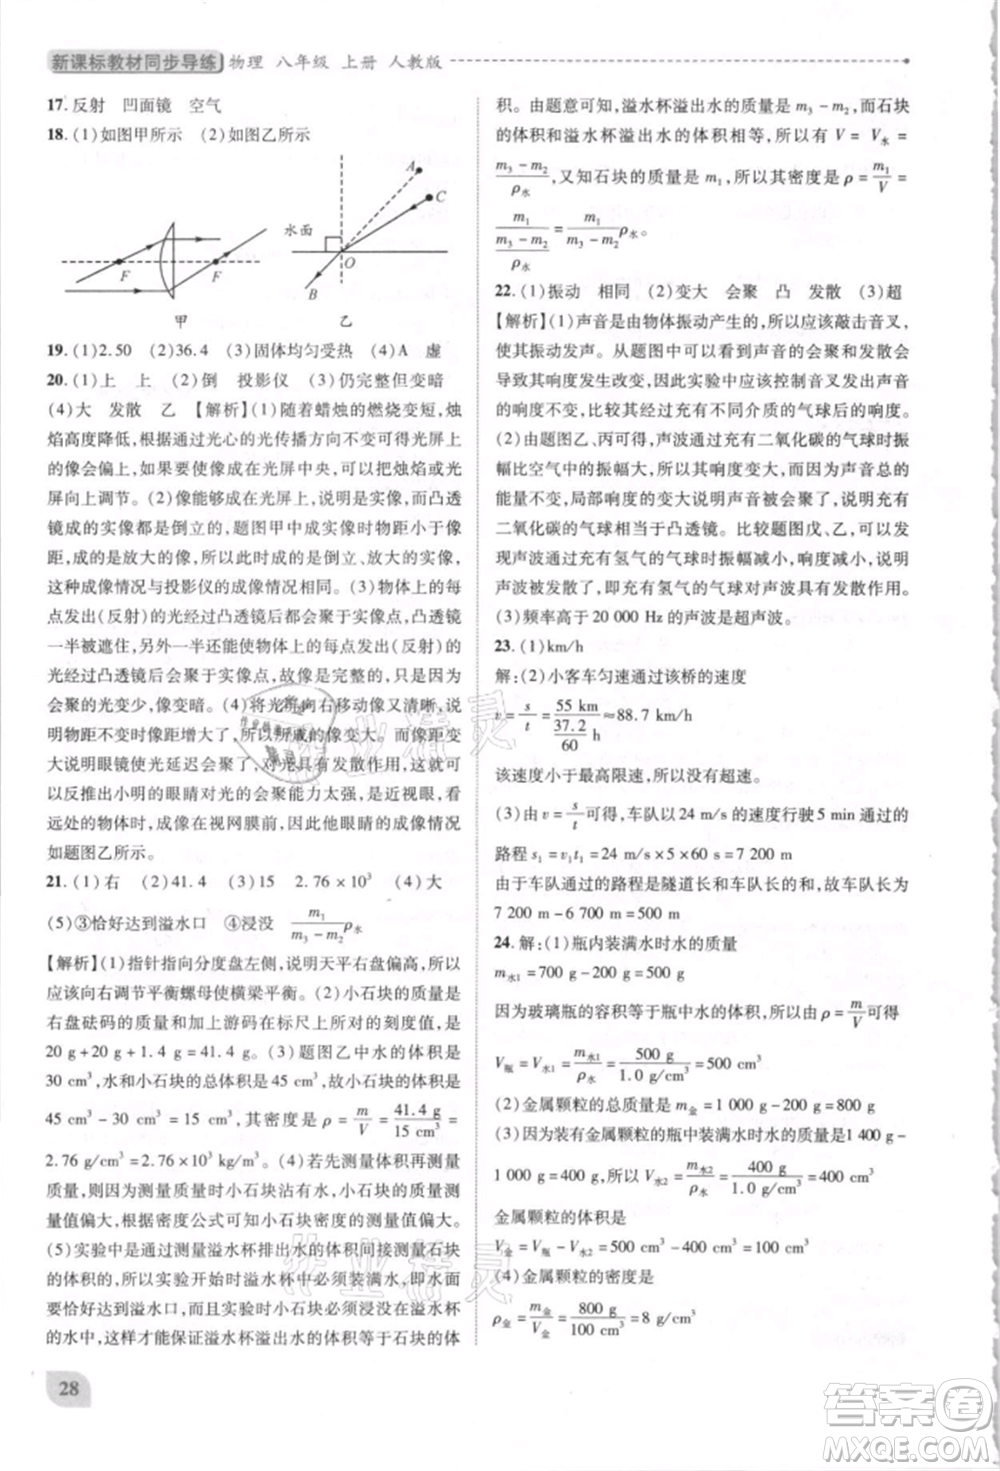 新课标教材同步导练 物理 八年级 上册 人教版
17.反射 凹面镜 空气
18.(1)如图甲所示 (2)如图乙所示
A
C
水面
F
F
O
B
甲
乙
19.(1)2.50 (2)36.4 (3)固体均匀受热 (4)A 虚
20.(1)上 上 (2)倒 投影仪 (3)仍完整但变暗
(4)大 发散 乙 【解析】(1)随着蜡烛的燃烧变短,烛
焰高度降低,根据通过光心的光传播方向不变,则烛焰
的像会合变高,要使像成在光屏中央,可以把烛焰或光
屏向上调节。(2)像能够成在光屏上,说明是实像,凸透
镜成的实像都是倒立的,题图甲中成实像时物距小于像
距,成的是放大的像,所以此时成的是倒立、放大的实像,
这种成像情况与投影仪的成像情况相同。(3)物体上的每
点发出(反射)的光经过凸透镜后有无数条,凸透镜的上
一半被遮住,另外一半还能使物体上每点发出(反射)的
光经过凸透镜后会聚于一点,故像是完整的,但因所成像
会聚的光线变少,像变暗。(4)将光屏向右移动像又清晰,说
明物体不变的情况下,像距变大,所成的像变大。物距不变,说
明眼镜使光延迟会聚了,故此眼镜对光具有发散作用,可
以反推出小明的眼睛对光的会聚能力太强,是近视眼,看
远处的物体时,成像在视网膜前,因此他眼睛的成像情况
如题图乙所示。
21.(1)右 (2)41.4 (3)15 2.76 ×10³ (4)大
(5)③恰好达到溢水口 ④浸没 m₁/(m₃－m₂)ρ水
【解析】(1)指针指向分度盘左侧,说明天平右端偏高,所以
应该向右调节平衡螺母使横梁平衡。(2)小石块的质量是
右盘砝码的质量和加上游码在标尺上所对的刻度值,是
20 g+20 g+1.4 g=41.4 g。(3)题图乙中水的体积是
30 cm³,水和小石块的总体积是45 cm³,故小石块的体积是
45 cm³－30 cm³=15 cm³,其密度是ρ=m/V=41.4 g/15 cm³=
2.76 g/cm³=2.76×10³ kg/m³。(4)若先测量体积再测量
质量,将导致测量质量时小石块沾有水,导致质量的测
量值偏大,根据密度公式可知小石块密度的测量值偏大。
(5)实验中是通过测量溢水杯排出水的体积间接测量石块
的体积的,所以实验开始时溢水杯中必须装满水,即水面
恰好达到溢水口,而且小石块必须浸没在溢水杯
的水中,这样才能保证溢水杯溢出水的体积等于石块的体
28
积。由题意可知,溢水杯溢出水的质量是m₃－m₂,而石块
的体积和溢水杯溢出水的体积相等,所以有V=V水=
(m₃－m₂)/ρ水,又知石块的质量是m₁,所以其密度是ρ=m₁/V=
m₁/((m₃－m₂)/ρ水)=m₁/(m₃－m₂)ρ水。
22.(1)振动 相同 (2)变大 会聚 凸 发散 (3)超
【解析】(1)声音是由物体振动产生的,所以应该敲击音叉,
使其振动发声。从题图可以看出声音的响度变化会
导致其振幅发生改变,因此实验中应该控制音叉发出声音
的响度不变,以便比较经过充有不同介质的气球后的响度。
(2)由题图乙、丙可得,声波通过充有二氧化碳的气球时振
幅比空气中的振幅大,说明响度变大;题图丁中声音的总能
量不变,局部响度的变大说明声音被会聚了,说明充有
二氧化碳的气球相当于凸透镜。比较题图戊、乙,可以发
现声波通过充有氢气的气球时振幅减小,响度减小,说明
声波被发散了,即充有氢气的气球对声波具有发散作用。
(3)频率高于20 000 Hz的声波是超声波。
23.(1)km/h
解:(2)小客车匀速通过该桥的速度
v=s/t=55 km/(37.2/60 h)≈88.7 km/h
该速度小于最高限速,所以没有超速。
(3)由v=s/t可得,车队以24 m/s的速度行驶5 min通过的
路程s₁=v₁t₁=24 m/s×5×60 s=7 200 m
由于车队通过的路程是隧道长和车队长之和,所以车队长
7 200 m－6 700 m=500 m
24.解:(1)瓶内装满水时水的质量
m水1=700 g－200 g=500 g
因为玻璃瓶的容积等于瓶中水的体积,所以由ρ=m/V可得
V瓶=V水1=m水1/ρ水=500 g/1.0 g/cm³=500 cm³
(2)金属颗粒的总质量是m金=1 000 g－200 g=800 g
(3)因为装有金属颗粒的瓶中装满水时水的质量为1 400 g－
1 000 g=400 g,所以V水2=m水2/ρ水=400 g/1.0 g/cm³=400 cm³
金属颗粒的体积是
V金=V瓶－V水2=500 cm³－400 cm³=100 cm³
(4)金属颗粒的密度是
ρ金=m金/V金=800 g/100 cm³=8 g/cm³
作业精灵
作业精灵
答案圈
MXQE.COM